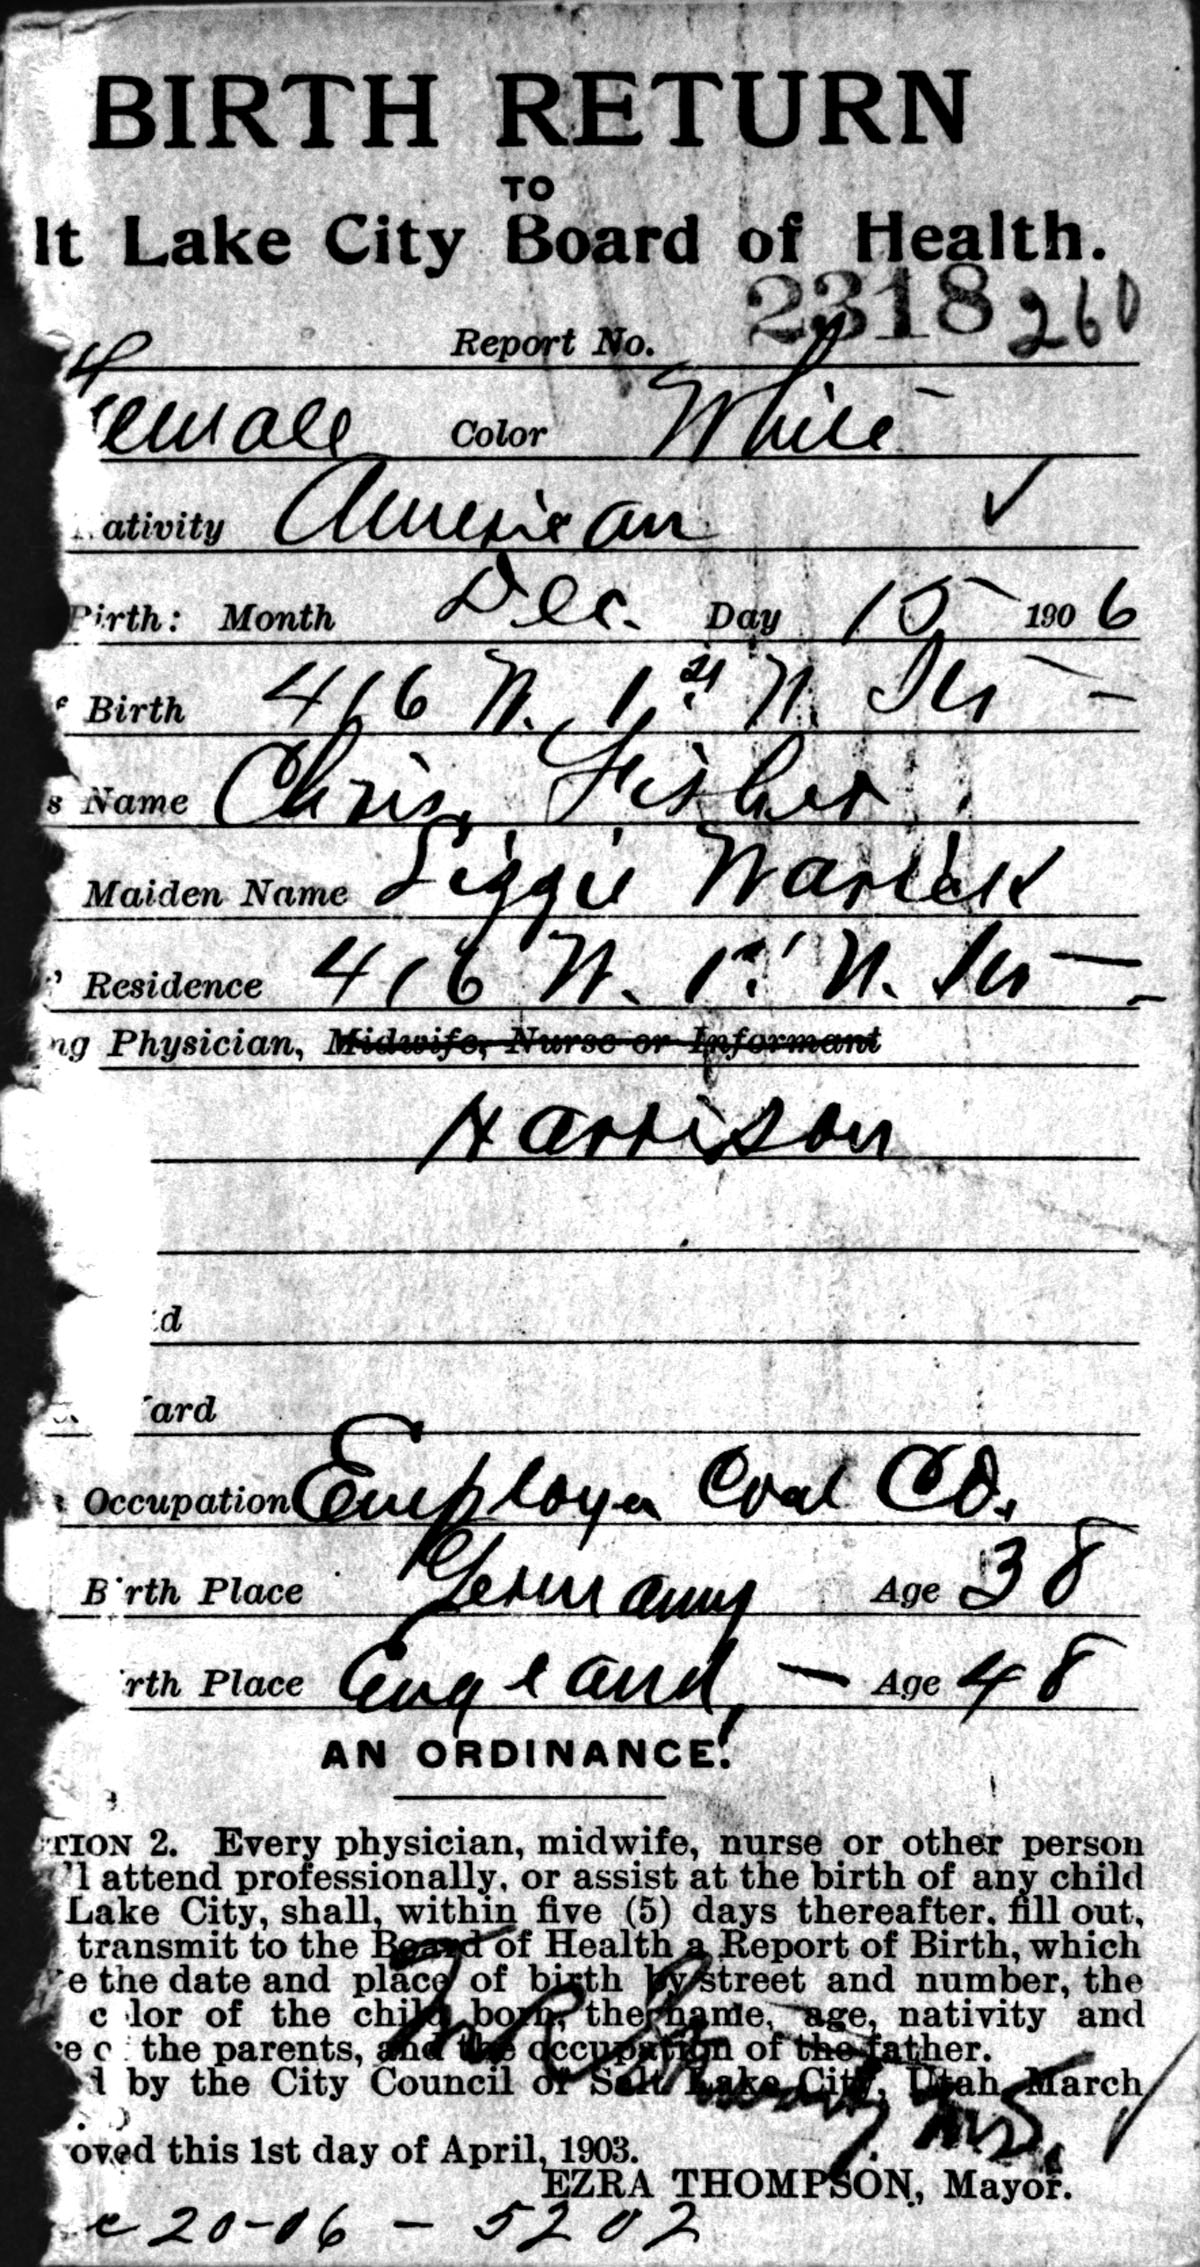 BIRTH RETURN
TO
lt Lake City Board of Health.
Report No. 2318 260
emale Color White
ativity American ✓
Birth: Month Dec. Day 15 1906
Birth 416 W. 1st N. St
s Name Chris. Fisher
Maiden Name Lizzie Warick
Residence 416 W. 1st N. St
ng Physician, Midwife, Nurse or Informant
Harrison
d
ard
Occupation Employe Coal CO.
Birth Place Germany Age 38
rth Place England, — Age 48
AN ORDINANCE.
TION 2. Every physician, midwife, nurse or other person
'l attend professionally, or assist at the birth of any child
Lake City, shall, within five (5) days thereafter, fill out,
transmit to the Board of Health a Report of Birth, which
e the date and place of birth by street and number, the
c lor of the child born, the name, age, nativity and
e o the parents, and the occupation of the father.
d by the City Council of Salt Lake City, Utah, March
oved this 1st day of April, 1903.
EZRA THOMPSON, Mayor.
c 20-06 — 5202